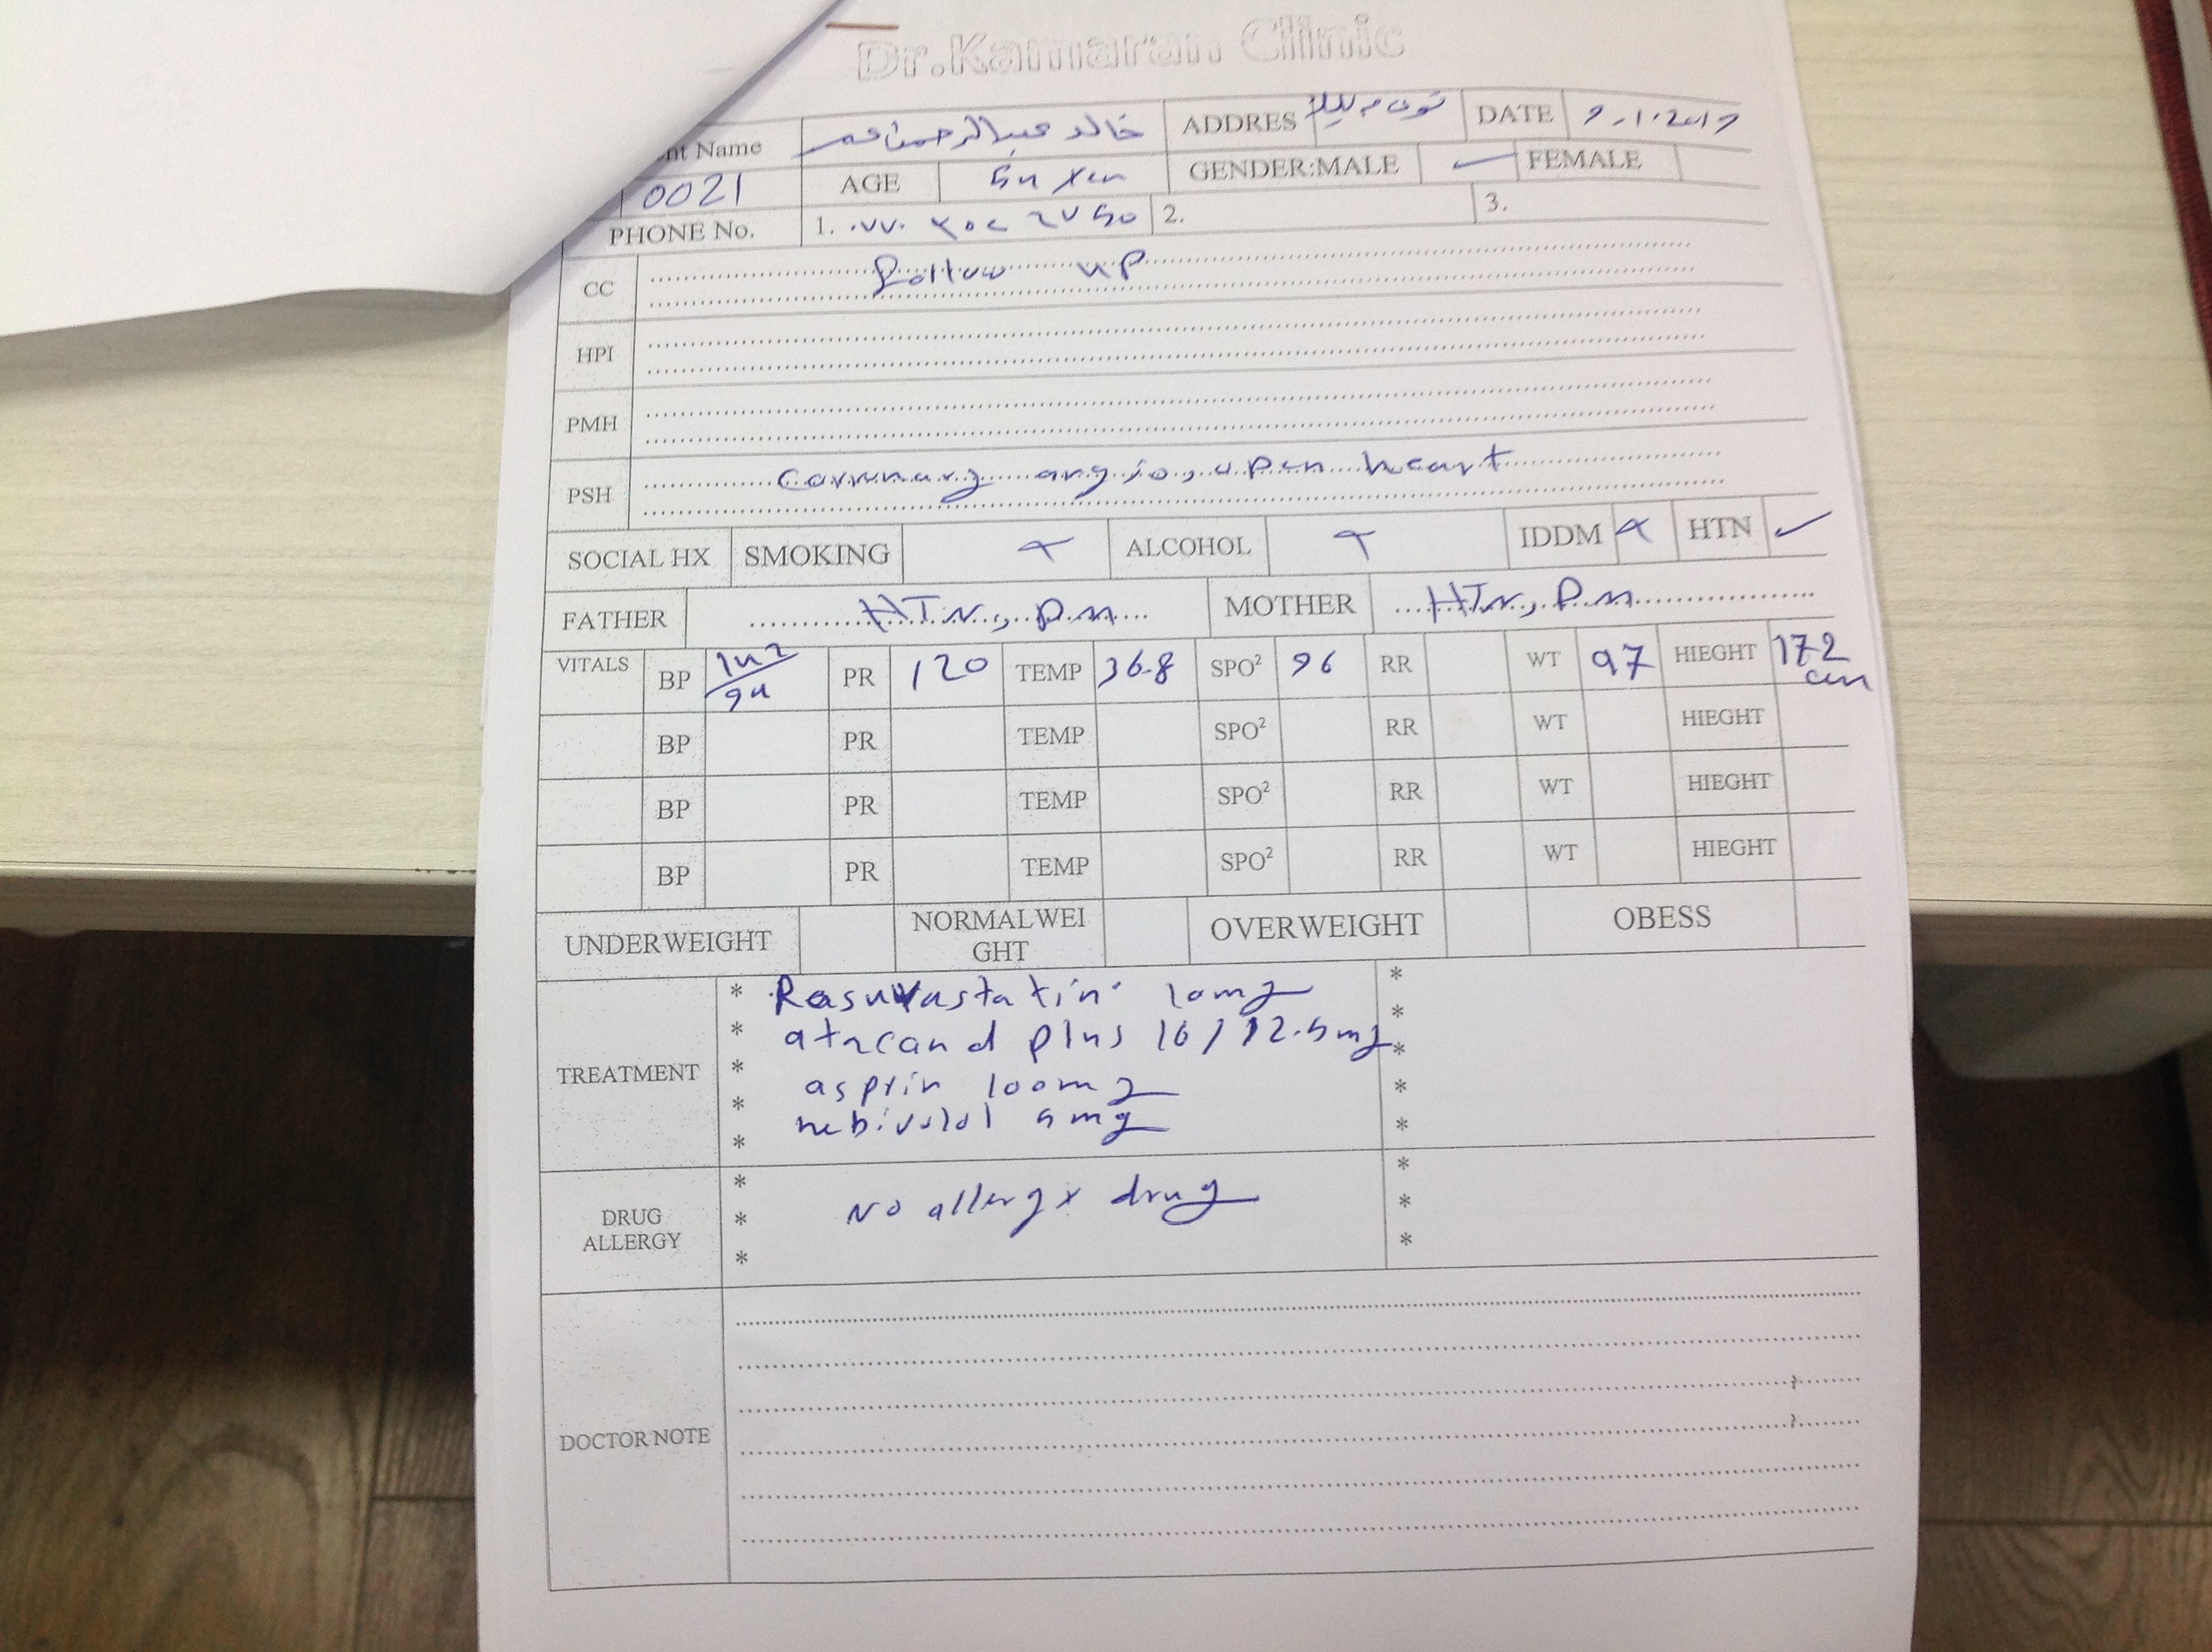 Dr.Kamaran Clinic
nt Name خالد عبدالرحمن عمر ADDRES DATE 9.1.2019
0021 AGE 54 yer GENDER:MALE ✓ FEMALE
PHONE No. 1. 2. 3.
CC Follow up
HPI
PMH
PSH Coronary angio, open heart
SOCIAL HX SMOKING ALCOHOL IDDM HTN ✓
FATHER HTN, DM MOTHER HTN, DM
VITALS BP 142/94 PR 120 TEMP 36.8 SPO² 96 RR WT 97 HIEGHT 172 cm
BP PR TEMP SPO² RR WT HIEGHT
BP PR TEMP SPO² RR WT HIEGHT
BP PR TEMP SPO² RR WT HIEGHT
UNDERWEIGHT NORMALWEI
GHT OVERWEIGHT OBESS
TREATMENT
* Rasuvastatin 10mg *
* atacand plus 16/12.5mg *
* asprin 100mg *
* nebivolol 5mg *
* *
DRUG
ALLERGY
* No allergy drug *
* *
* *
DOCTOR NOTE